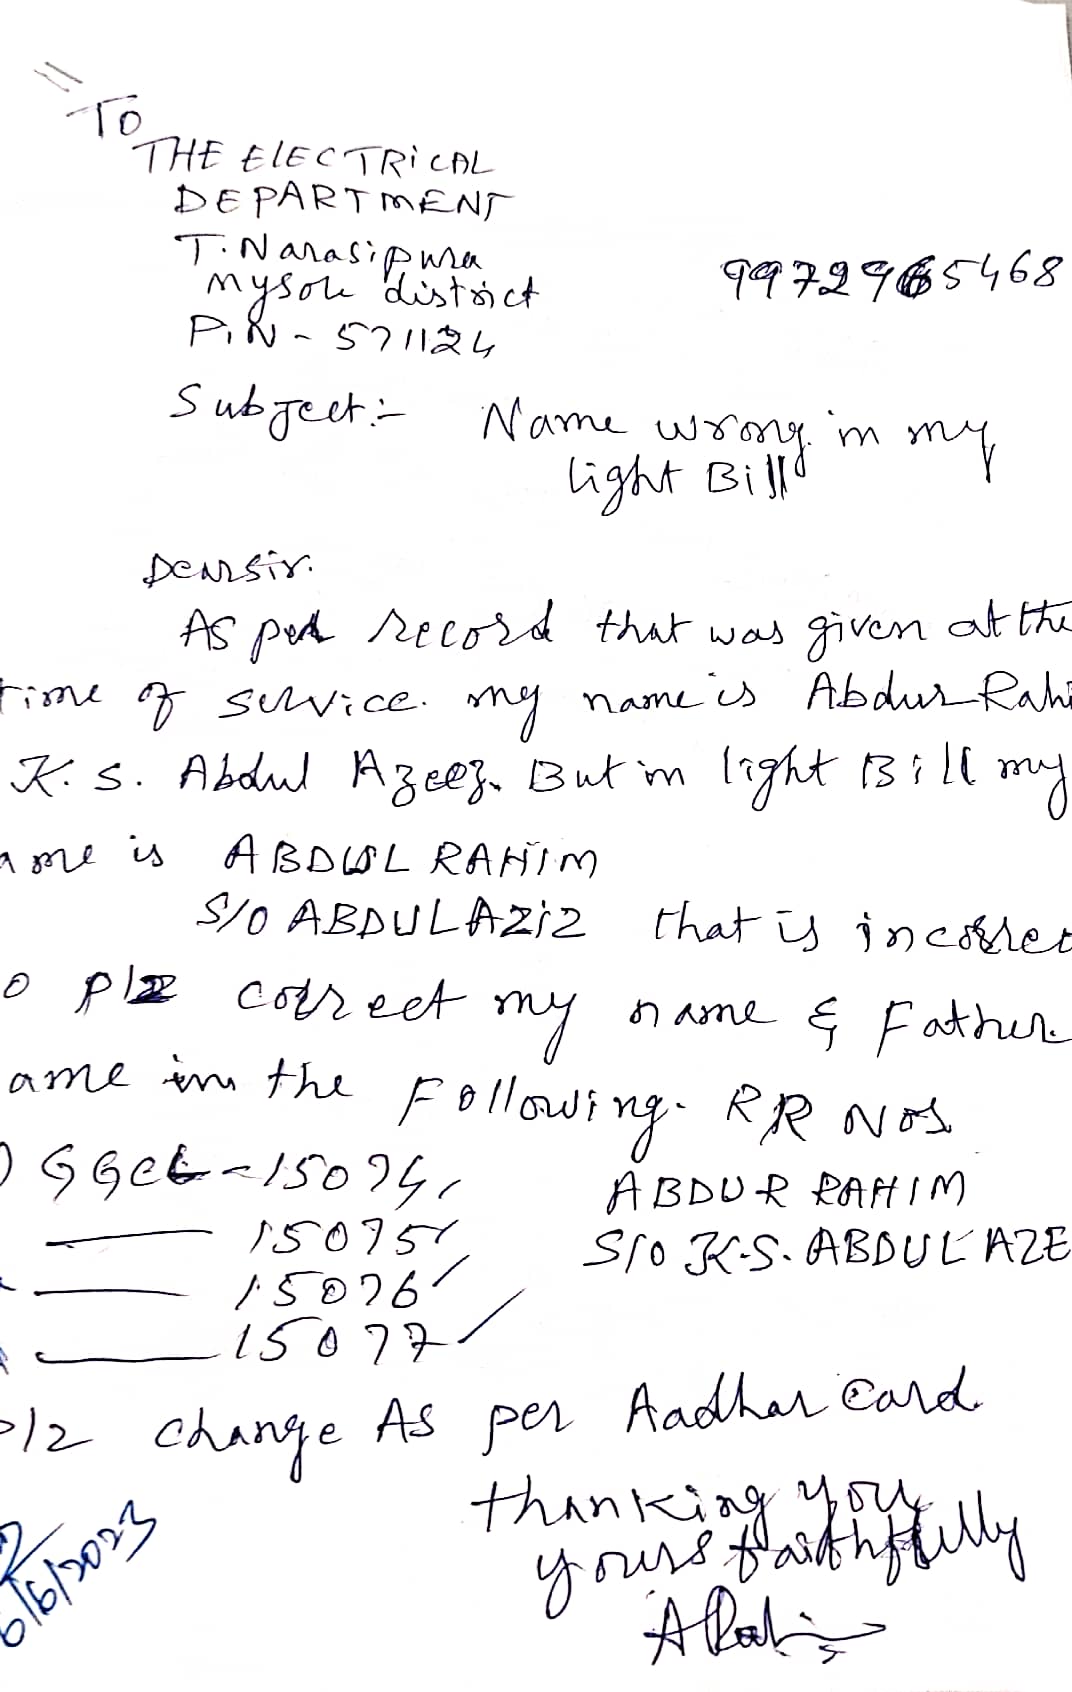 To
THE ElECTRiCAL
DEPARTMENT
T. Narasipura
mysore district
99729 65468
PiN - 571124
Subject :- Name wrong in my
light Bill
Dear sir.
As per record that was given at the
time of service. my name is Abdur Rahi
K. S. Abdul Azeez. But in light Bill my
ame is ABDUL RAHIM
S/O ABDUL AZiZ that is incorrec
o plz correct my name & Father
ame in the Following. RR NOS
) GGCL - 15074
ABDUR RAHIM
15075
S/O K.S. ABDUL AZE
15076
15077
plz change As per Aadhar Card.
thanking you
yours faithffully
6/6/2023
ARahi